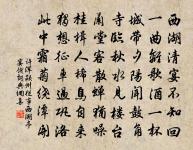 西湖清宴不知回
一曲離歌酒一杯
城帶夕陽聞鼓角
寺臨秋水見樓臺
蘭堂客散蟬猶噪
桂楫人稀鳥自來
獨想征車過鞏洛
此中霜菊繞潭開
許渾潁州從事西湖亭
宴餞詞典網集